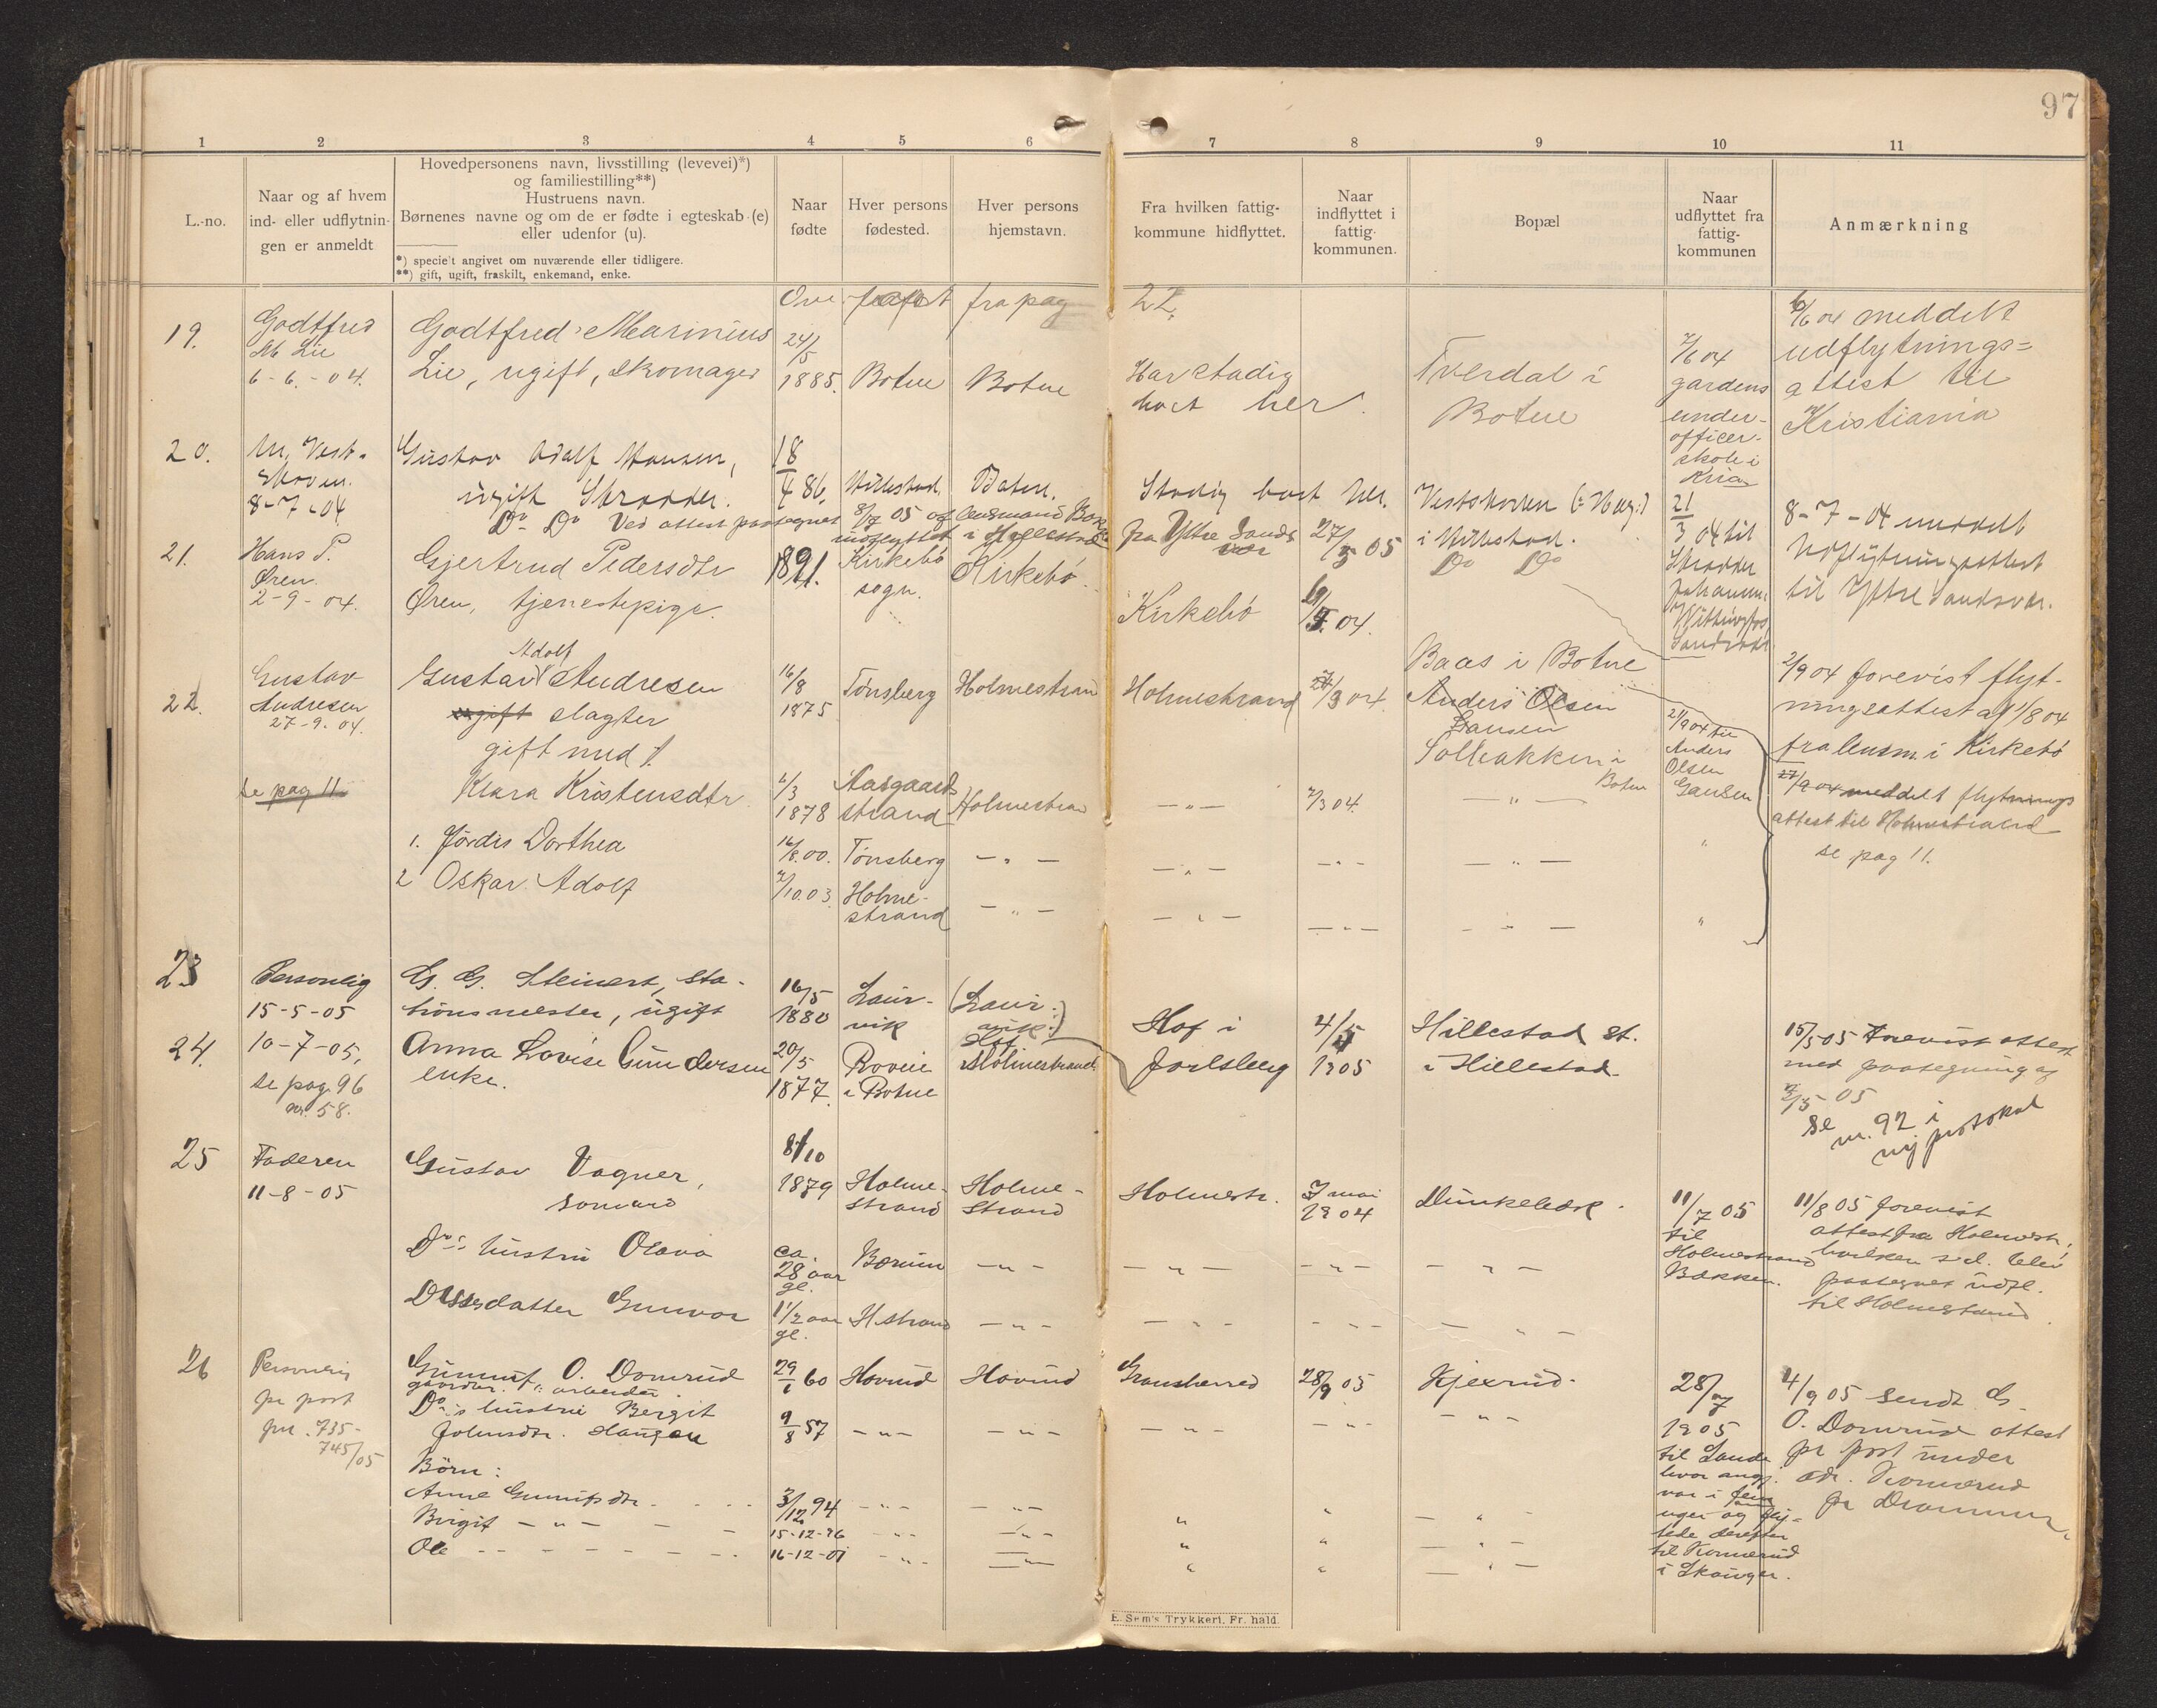 97
1 2 3 4 5 6 7 8 9 10 11
L.-no.
Naar og af hvem
ind- eller udflytnin-
gen er anmeldt
Hovedpersonens navn, livsstilling (levevei)*)
og familiestilling**)
Hustruens navn.
Børnenes navne og om de er fødte i egteskab (e)
eller udenfor (u).
*) specielt angivet om nuværende eller tidligere.
**) gift, ugift, fraskilt, enkemand, enke.
Naar
fødte
Hver persons
fødested.
Hver persons
hjemstavn.
Fra hvilken fattig-
kommune hidflyttet.
Naar
indflyttet i
fattig-
kommunen.
Bopæl
Naar
udflyttet fra
fattig-
kommunen
Anmærkning
fra pag 22.
19.
Godtfred
M Lie
6-6.-04.
Godtfred Marinius
Lie, ugift, skomager
24/5
1885.
Botne
Botne
Har stadig
boet her.
Tverdal i
Botne
7/6 04
gardens
under-
officer-
skole i
Kria
6/6 04 meddelt
udflytnings=
attest til
Kristiania
20.
Vest-
skoven.
8-7-04
Gustav Adolf Hansen,
ugift Skrædder.
Do Do Ved attest paategnet 8/7 05 af lensmand Bakke
indflyttet i Hillestad
18
4 86.
Hillestad.
Botne.
Stadig boet her.
fra Ytre Sands
vær
27/5 05
Vestskoven (: Haug:)
i Hillestad.
Do Do
21
3 04 til
Skrædder
Johannes
Vittingfos
Sandsvær
8-7-04 meddelt
Udflytningsattest
til Ytre Sandsvær.
21.
Hans P.
Øren.
2-9-04.
Gjertrud Pedersdtr
Øren, tjenestepige.
1891.
Kirkebø
sogn.
Kirkebø.
Kirkebø
04.
Baas i Botne
2/9 04 forevist flyt-
ningsattest af 1/8 04
fra lensm. i Kirkebø
22.
Gustav
Andresen
27-9-04.
se pag 11.
Adolf
Gustav Andresen
ugift slagter
gift med
Klara Kristensdtr
1. Hjørdis Dorthea
2 Oskar Adolf
16/8
1875
2/3
1878
16/8.00.
7/10.03.
Tønsberg
Aasgaard
strand
Tønsberg
Holme-
strand
Holmestrand
Holmestran
— „ —
— „ —
Holmestrand
— „ —
— „ —
— „ —
/3 04.
7/3 04.
— „ —
— „ —
Anders Olsen
Gausen
Solbakken i
Botne
— „ —
— „ —
— „ —
21/9 04 til
Anders
Olsen
Gausen
„
„
27/9 04 meddelt flytnings
attest til Holmestrand
se pag 11.
23
Personlig
15-5-05
G. G. Steinert, sta-
tionsmester, ugift
16/5
1880
Laur-
vik
(Laur-
vik:)
Hof
Hof i
Jarlsberg
4/5
1905
Hillestad st.
i Hillestad.
15/5 05 Forevist attest
med paategning af
2/5-05
24.
10-7-05,
se pag. 96
nr. 58.
Anna Lovise Gundersen
enke.
20/5
1877.
Roveie
i Botne
Holmestrand
se
nr. 92 i
ny protokol
25
Faderen
11-8-05
Gustav Vagner,
sømand
Do's hustru Olava
Disses datter Gunvor
8/10
1879
ca.
28 aar
gl.
1 1/2 aar
gl.
Holme-
strand
Bærum
H.strand
Holme-
strand
— „ —
— „ —
Holmestr.
— „ —
— „ —
7 mai
1904
— „ —
— „ —
Dunkebæk.
— „ —
— „ —
11/7 05
til
Holmestrand
Bakken.
11/8 05 forevist
attest fra Holmestr.,
hvilken s.d. blev
paategnet udfl.
til Holmestrand.
26
Personlig
pr post
jnr. 735-
745/05
Gunnuf O. Domrud
gaardbr. arbeider.
Do's hustru Bergit
Johnsdtr. Haugen
Børn:
Anne Gunnufsdtr.
Birgit — „ —
Ole
29/1 60
9
8 57
3/12 94
15-12-96
16-12-01
Hovind
— „ —
— „ —
— „ —
— „ —
Hovind
— „ —
— „ —
— „ —
— „ —
Gransherred
— „ —
„
„
„
28/9 03
— „ —
„
„
„
Kjexrud.
— „ —
— „ —
— „ —
— „ —
28/7
1905
til Sande
hvor angj.
var i fem
uger og flyt-
tede derefter
til Konnerud
i Skouger.
4/9 05 sendt G.
O. Domrud attest
pr post under
adr. Konnerud
pr Drammen.
E. Sem's Trykkeri, Fr. hald.